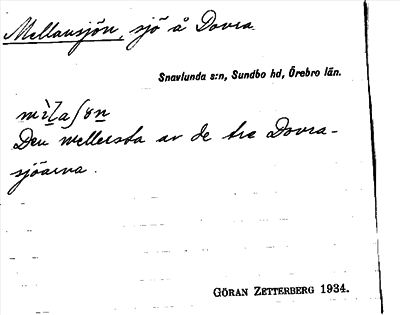 Mellansjön, sjö å Dovra.
Snavlunda s:n, Sundbo hd, Örebro län.
Den mellersta av de tre Dovra-
sjöarna.
GÖRAN ZETTERBERG 1934.